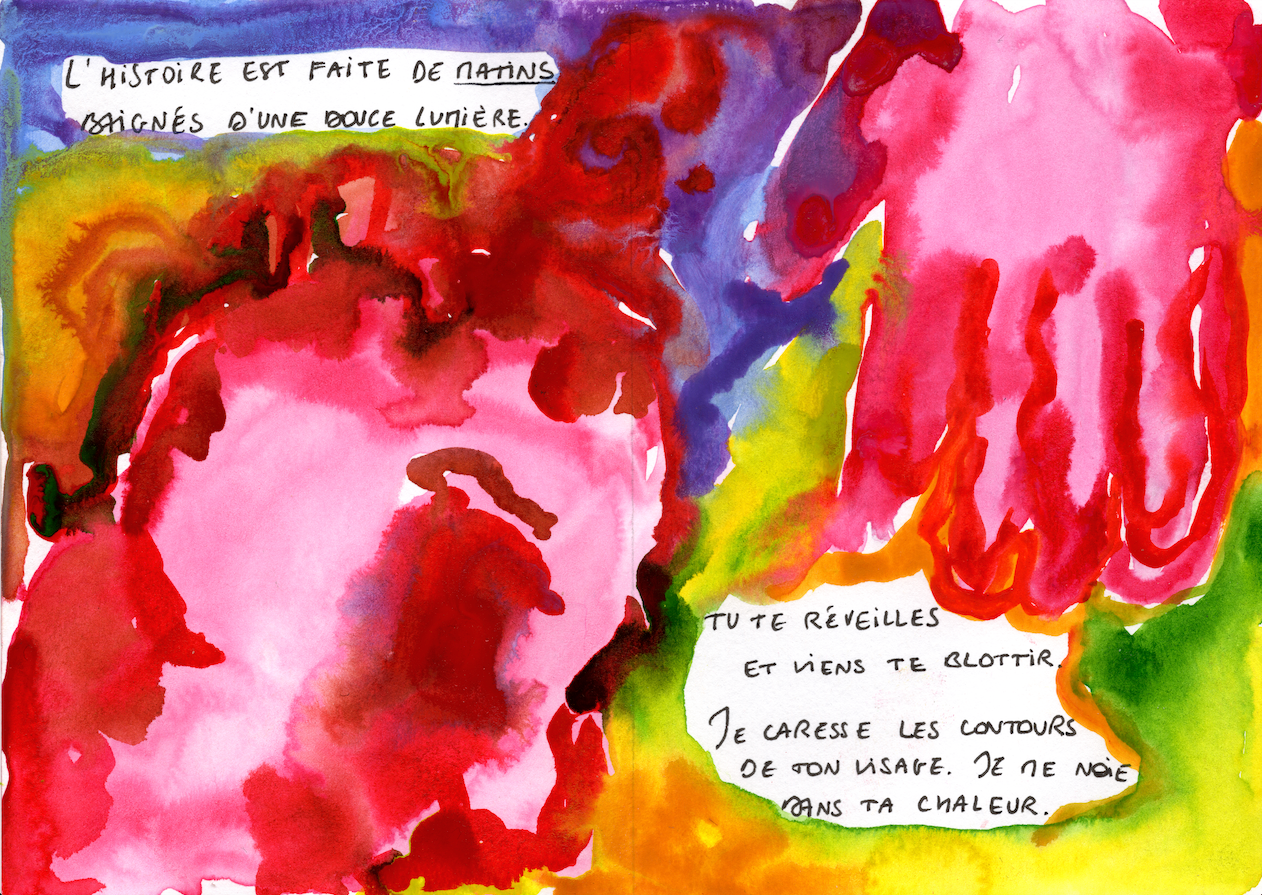 L'HISTOIRE EST FAITE DE MATINS
BAIGNÉS D'UNE DOUCE LUMIÈRE.
TU TE RÉVEILLES
ET VIENS TE BLOTTIR.
JE CARESSE LES CONTOURS
DE TON VISAGE. JE ME NOIE
DANS TA CHALEUR.